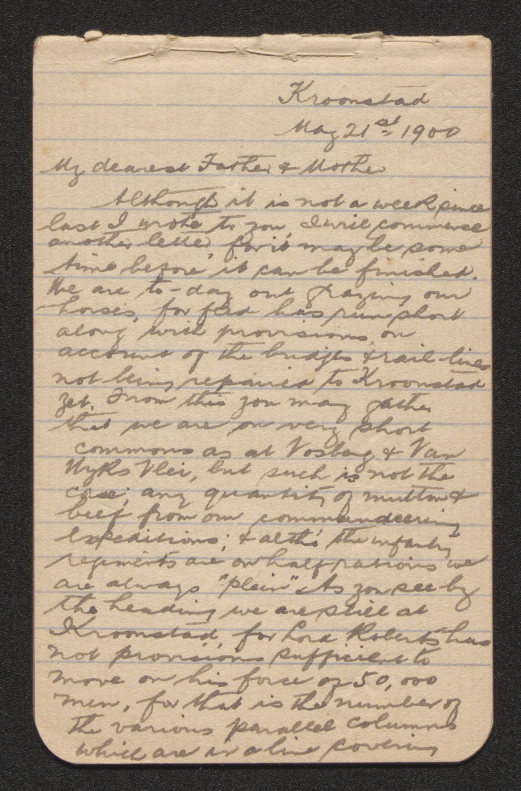 Kroonstad
May 21st 1900
My dearest Father & Mother
Although it is not a week since
last I wrote to you, I will commence
another letter, for it may be some
time before it can be finished.
We are to-day out grazing our
horses, for feed has run short
along with provisions, on
account of the bridges & rail-lines
not being repaired to Kroonstad
yet. From this you may gather
that we are on very short
commons as at Vosberg & Van
Wyks Vlei, but such is not the
case; any quantity of mutton &
beef from our commandeering
expeditions; & altho' the infantry
regiments are on half rations we
are always "plein" As you see by
the heading we are still at
Kroonstad, for Lord Roberts has
not provisions sufficient to
move on his force of 50,000
men, for that is the number of
the various parallel columns
which are in a line covering